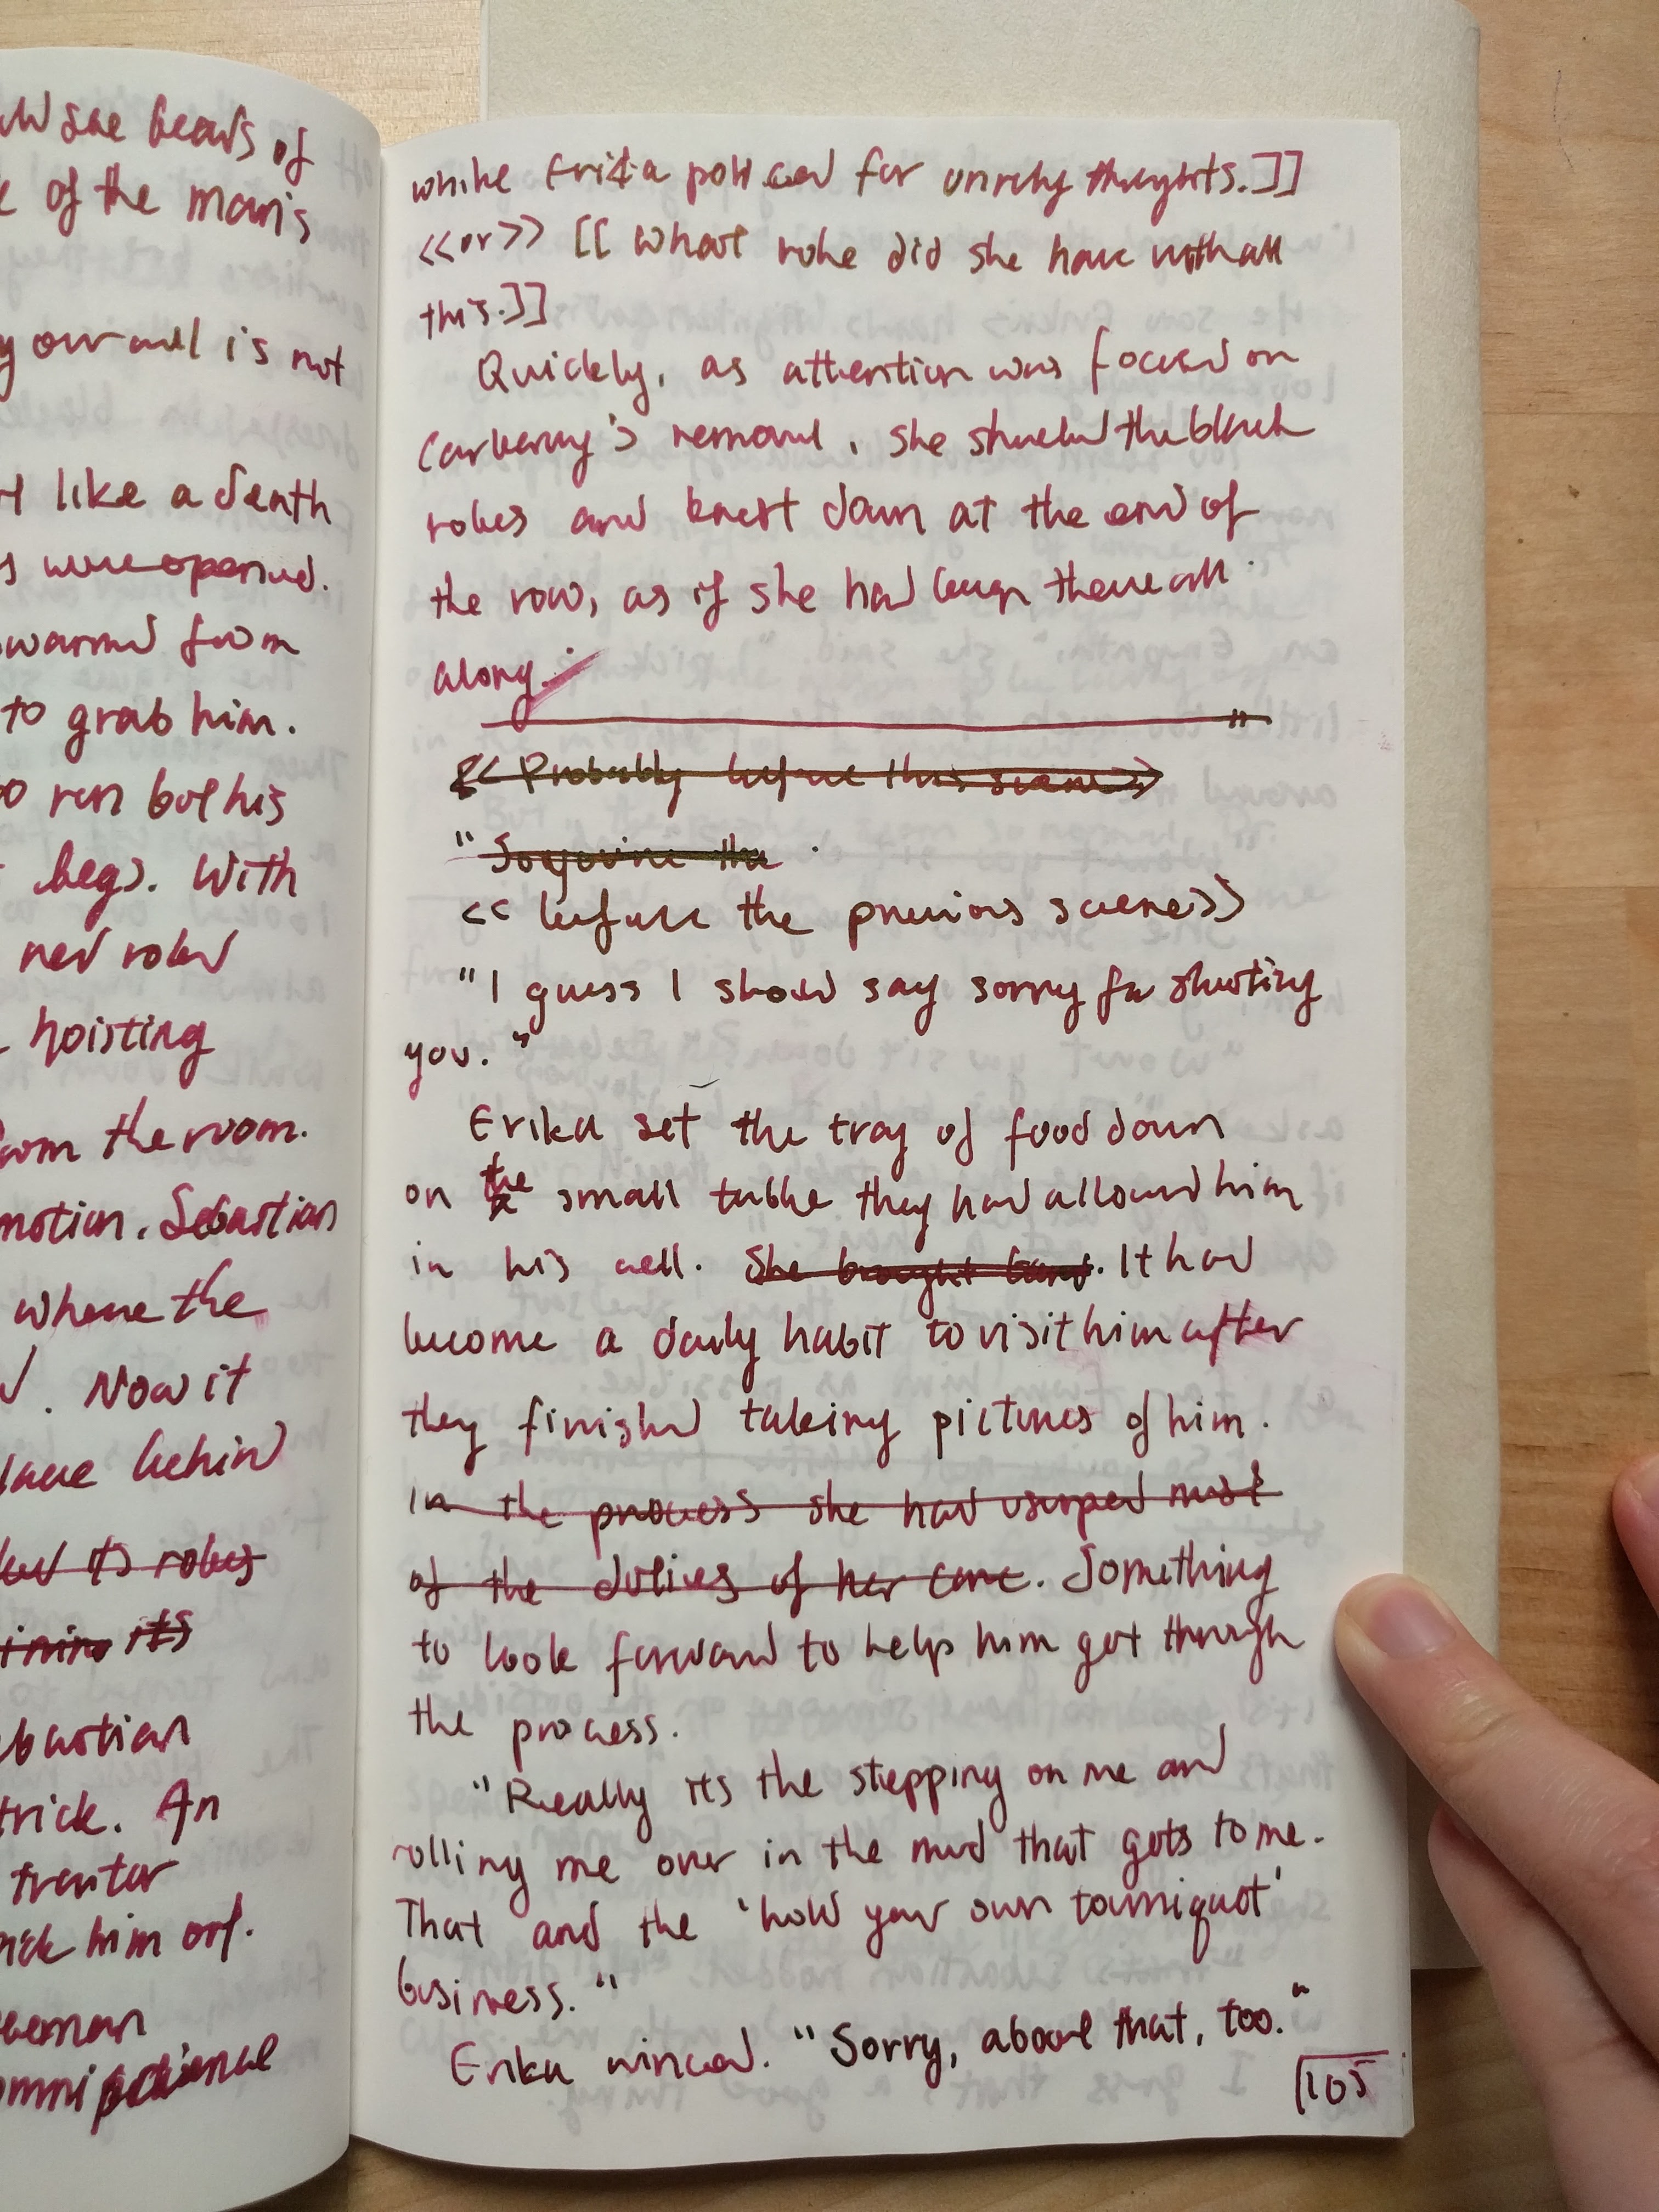 she beads of
of the man's
our cell is not
like a death
were opened.
swarmed from
to grab him.
run but his
legs. With
red robed
hoisting
from the room.
motion. Sebastian
where the
. Now it
behind
its robes
its
Sebastian
trick. An
traitor
him off.
while Erika policed for unruly thoughts.]]
<<or>> [[What role did she have with all
this.]]
Quickly, as attention was focused on
Carkerry's removal, she shucked the black
robes and knelt down at the end of
the row, as if she had been there all
along.
<<Probably before this scene>>
"
<<before the previous scene>>
"I guess I should say sorry for shooting
you."
Erika set the tray of food down
on the small table they had allowed him
in his cell. She brought . It had
become a daily habit to visit him after
they finished taking pictures of him.
In the process she had usurped most
of the duties of her care. Something
to look forward to help him get through
the process.
"Really its the stepping on me and
rolling me over in the mud that gets to me.
That and the 'hold your own tourniquet'
business."
Erika winced. "Sorry, about that, too."
105